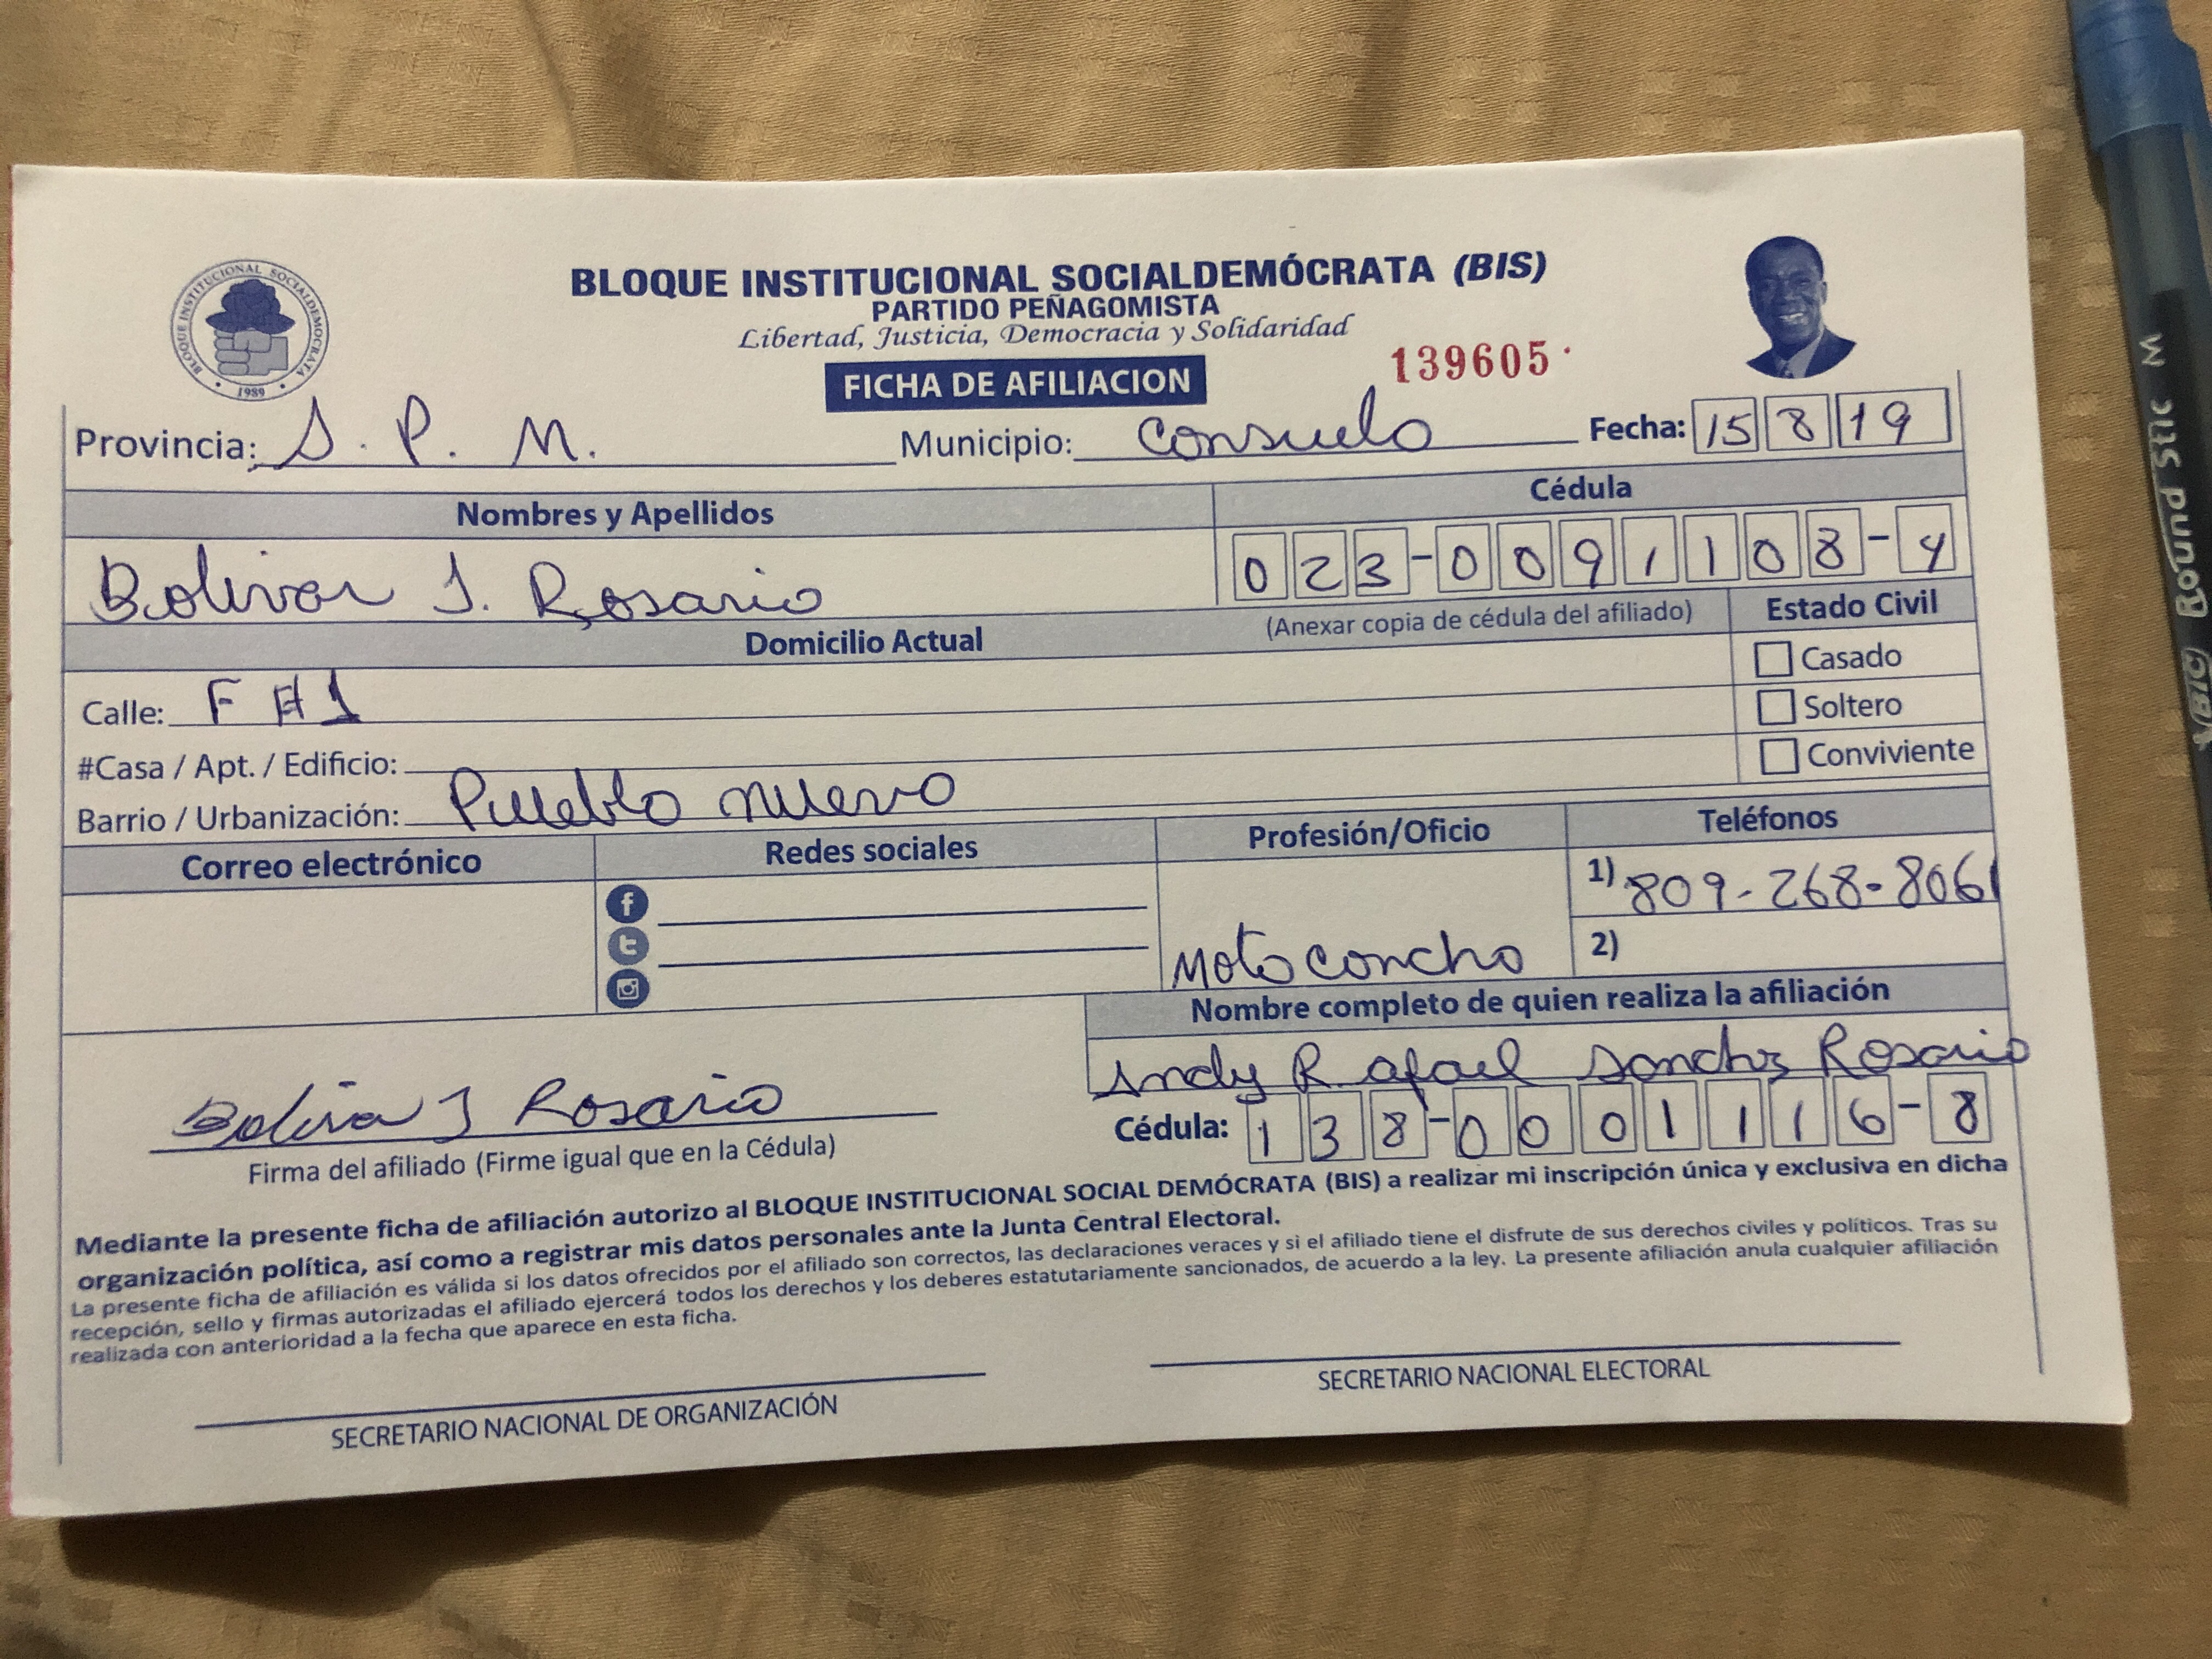 BLOQUE INSTITUCIONAL SOCIALDEMÓCRATA (BIS)
PARTIDO PEÑAGOMISTA
Libertad, Justicia, Democracia y Solidaridad
BLOQUE INSTITUCIONAL SOCIALDEMOCRATA
1989
139605
FICHA DE AFILIACION
Provincia: S. P. M. Municipio: Consuelo Fecha: 15 8 19
Nombres y Apellidos Cédula
Bolivar J. Rosario 023-0091108-4
(Anexar copia de cédula del afiliado) Estado Civil
Domicilio Actual
Casado
Calle: F #1
Soltero
#Casa / Apt. / Edificio:
Conviviente
Barrio / Urbanización: Pueblo nuevo
Correo electrónico Redes sociales Profesión/Oficio Teléfonos
1) 809-268-8061
Motoconcho 2)
Nombre completo de quien realiza la afiliación
Andy Rafael Sanchz Rosario
Boliva J Rosario
Cédula: 138-0001116-8
Firma del afiliado (Firme igual que en la Cédula)
Mediante la presente ficha de afiliación autorizo al BLOQUE INSTITUCIONAL SOCIAL DEMÓCRATA (BIS) a realizar mi inscripción única y exclusiva en dicha
organización política, así como a registrar mis datos personales ante la Junta Central Electoral.
La presente ficha de afiliación es válida si los datos ofrecidos por el afiliado son correctos, las declaraciones veraces y si el afiliado tiene el disfrute de sus derechos civiles y políticos. Tras su
recepción, sello y firmas autorizadas el afiliado ejercerá todos los derechos y los deberes estatutariamente sancionados, de acuerdo a la ley. La presente afiliación anula cualquier afiliación
realizada con anterioridad a la fecha que aparece en esta ficha.
SECRETARIO NACIONAL DE ORGANIZACIÓN
SECRETARIO NACIONAL ELECTORAL
BIC Round Stic M